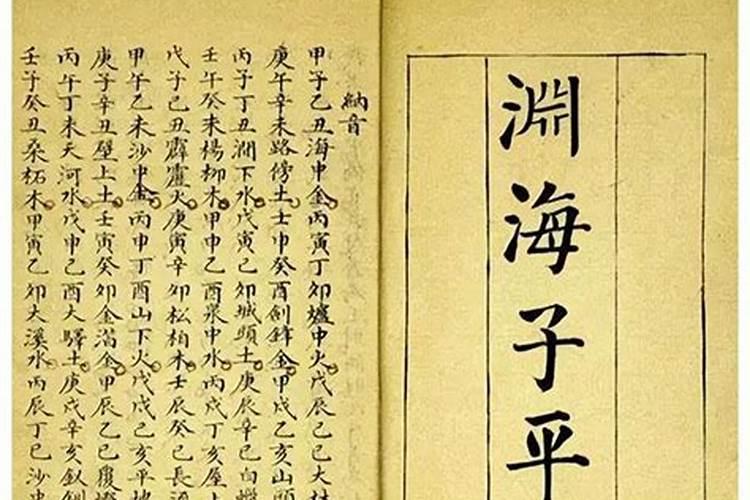 淵海子平
納音
甲子乙丑海中金丙寅丁卯爐中火戊辰己巳大林
庚午辛未路傍土壬申癸酉劍鋒金甲戌乙亥山頭
丙子丁丑澗下水戊寅己卯城頭土庚辰辛巳白蠟
壬午癸未楊柳木甲申乙酉泉中水丙戌丁亥屋上
戊子己丑霹靂火庚寅辛卯松柏木壬辰癸巳長流
甲午乙未沙中金丙申丁酉山下火戊戌己亥平地
庚子辛丑壁上土壬寅癸卯金箔金甲辰乙巳覆燈
丙午丁未天河水戊申己酉大驛土庚戌辛亥釵釧
壬子癸丑桑柘木甲寅乙卯大溪水丙辰丁巳沙中